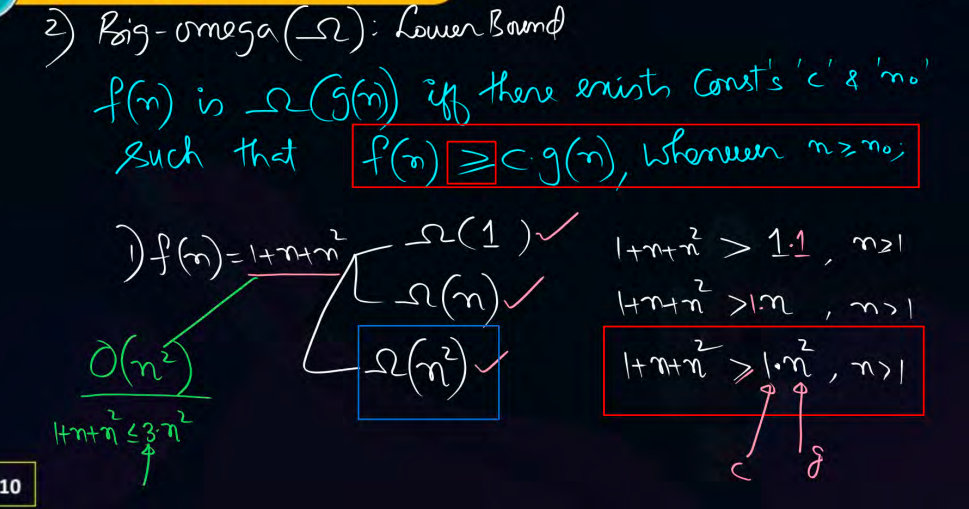 2) Big-omega (Ω): Lower Bound
f(n) is Ω(g(n)) iff there exists Const's 'c' & 'n₀'
such that f(n) ≥ c·g(n), whenever n ≥ n₀;
1) f(n) = 1+n+n²
Ω(1) ✓
Ω(n) ✓
Ω(n²) ✓
O(n²)
1+n+n² ≤ 3·n²
1+n+n² > 1·1, n≥1
1+n+n² > 1·n, n>1
1+n+n² ≥ 1·n², n>1
c g
10